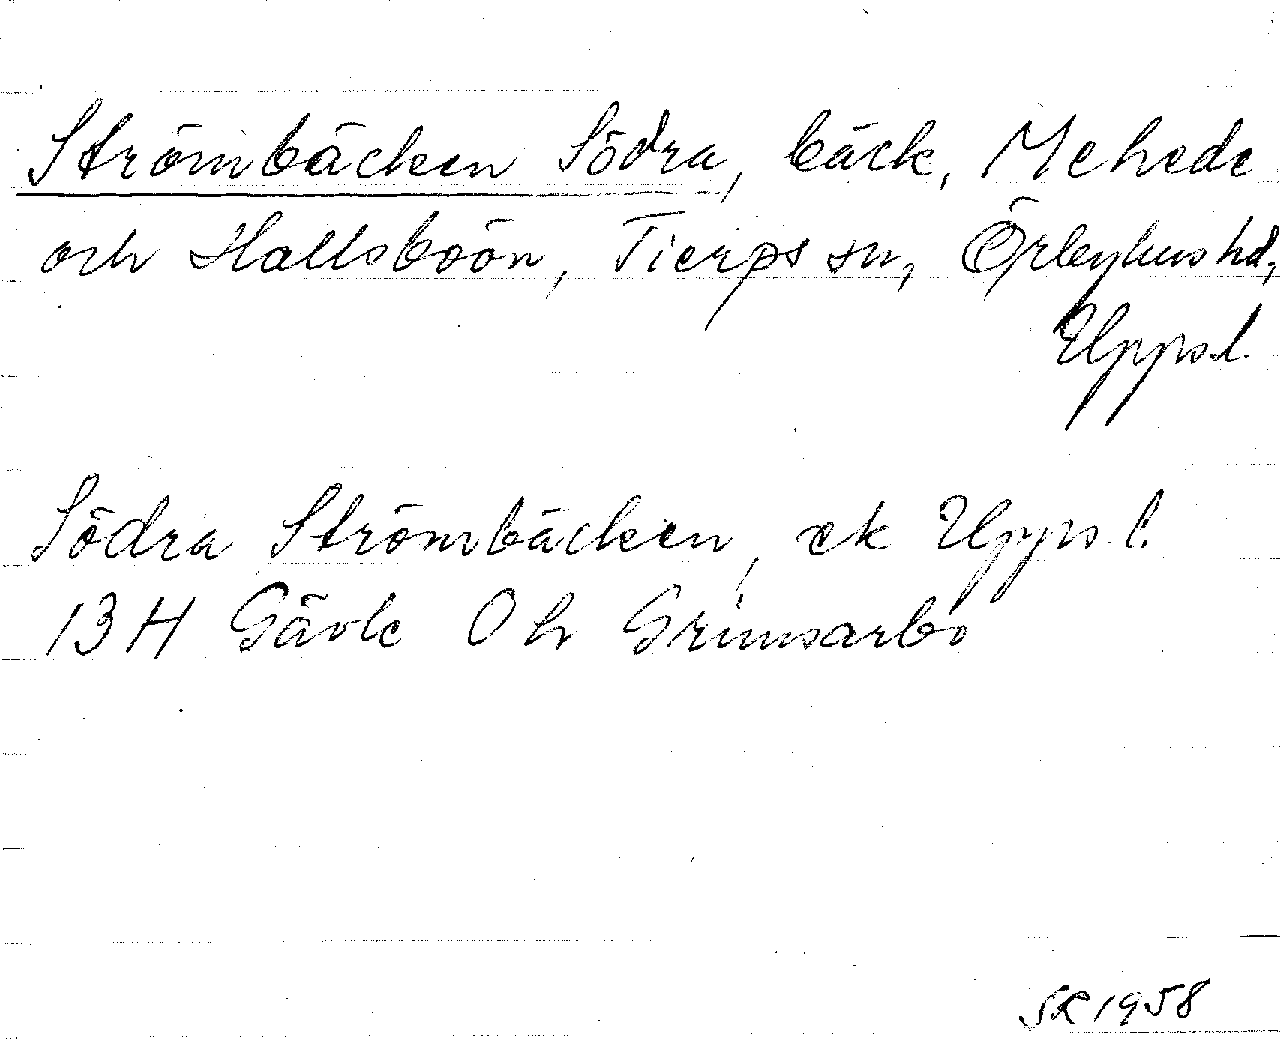 Strömbäcken Södra, bäck, Mehede
och Hallsboön, Tierps sn, Örbyhus hd,
Uppsl.
Södra Strömbäcken, ek Upps l.
13H Gävle Oh Grimsarbo
SR 1958